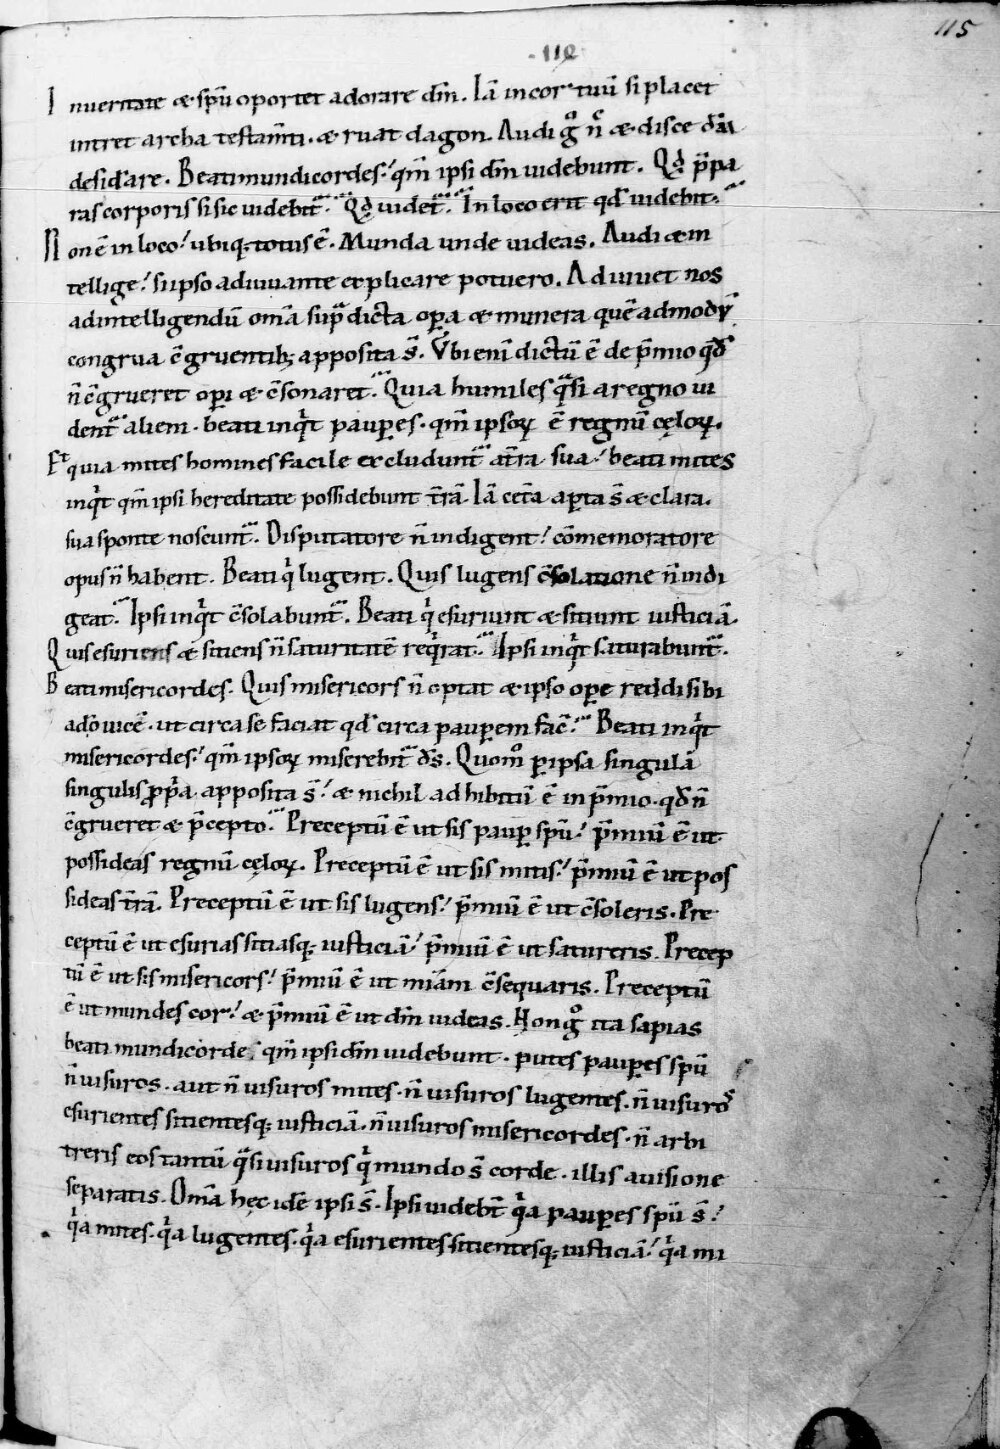 115
112
In ueritate æ spū oportet adorare dm̄. Iā in cor tuū si placet
intret archa testam̄ti. æ ruat dagon. Audi gͦ nc̄ æ disce dm̄
desiđare. Beati mundi cordes? qm̄ ipsi dm̄ uidebunt. Qđ p̄pa
ras corporis si sic uidebit᷑. Qđ uidet᷑. In loco erit qđ uidebit᷑.
Non ē in loco? ubiq; totus ē. Munda unde uideas. Audi æ in
tellige? si ipso adiuuante explicare potuero. Adiuuet nos
ad intelligendū om̄a sup̄dicta op̲a æ munera quē admodū
congrua ꝯgruentib; apposita s̄. Vbi eni dictū ē de p̄mio qđ
n̄ ꝯgrueret op̲i æ ꝯsonaret. Quia humiles qͣsi a regno ui
dent᷑ alieni. beati inqͥt paup̲es. qm̄ ipsoꝝ ē regnū cęloꝝ.
Et quia mites homines facile excludunt᷑ a t̄ra sua? beati mites
inqͥt qm̄ ipsi hereditate possidebunt t̄rā. Iā cet̄a ap̲ta s̄ æ clara.
sua sponte noscunt᷑. Disputatore n̄ indigent? cōmemoratore
opus n̄ habent. Beati qͥ lugent. Quis lugens ꝯsolatione n̄ indi
geat. Ipsi inqͥt ꝯsolabunt᷑. Beati qͥ esuriunt æ sitiunt iusticiā.
Quis esuriens æ sitiens n̄ saturitatē reqͥrat. Ipsi inqͥt saturabunt᷑.
Beati misericordes. Quis misericors n̄ optat æ ipso op̲e reddi sibi
a do uicē. ut circa se faciat qđ circa paup̲em fac̄. Beati inqͥt
misericordes? qm̄ ipsoꝝ miserebit᷑ ds̄. Quom̊ p̲ ipsa singula
singulis ꝓpͥa apposita s̄? æ nichil adhibitū ē in p̄mio. qđ n̄
ꝯgrueret æ p̄cepto. Preceptū ē ut sis paup̲ spū? p̄miū ē ut
possideas regnū cęloꝝ. Preceptū ē ut sis mitis? p̄miū ē ut pos
sideas t̄rā. Preceptū ē ut sis lugens? p̄miū ē ut ꝯsoleris. Pre
ceptū ē ut esurias sitiasq; iusticiā? p̄miū ē ut satureris. Precep
tū ē ut sis misericors? p̄miū ē ut miām ꝯsequaris. Preceptū
ē ut mundes cor? æ p̄miū ē ut dm̄ uideas. Non gͦ ita sapias
beati mundi corde, qm̄ ipsi dm̄ uidebunt. putes paup̲es spū
n̄ uisuros. aut n̄ uisuros mites. n̄ uisuros lugentes. n̄ uisuros
esurientes sitientesq; iusticiā. n̄ uisuros misericordes. n̄ arbi
treris eos tantū qͣsi uisuros qͥ mundo s̄ corde. illis a uisione
separatis. Om̄a hęc idē ipsi s̄. Ipsi uidebt̄ qͥa paup̲es spū s̄?
qͥa mites. qͥa lugentes. qͥa esurientes sitientesq; iusticiā? qͥa mi